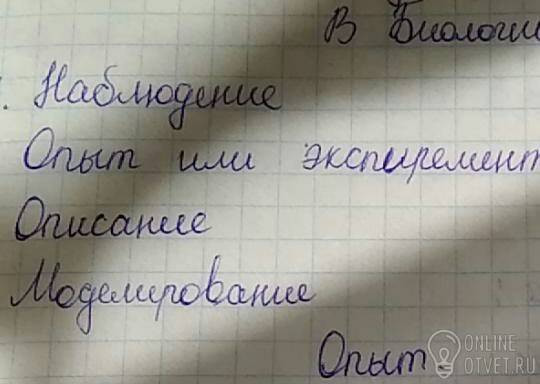 В Биологии
Наблюдение
Опыт или экспиремент
Описание
Моделирование
Опыт.
ONLINE
OTVET.RU